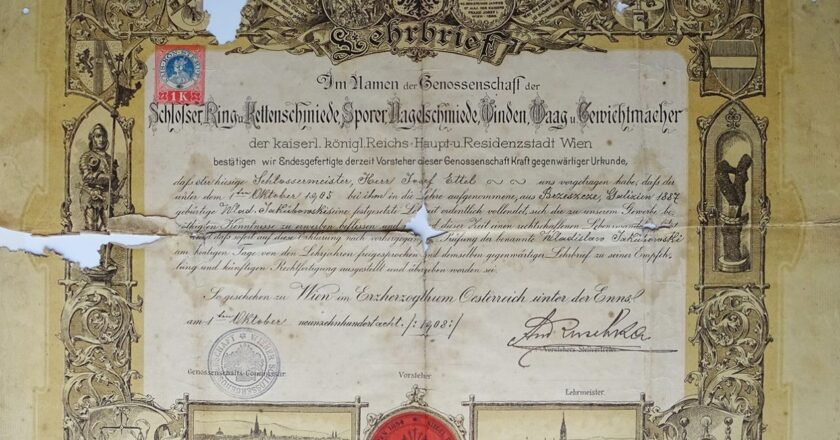 Lehrbrief
1 K
Im Namen der Genossenschaft der
Schlosser, Ring u. Kettenschmiede, Sporer, Nagelschmiede, Winden, Waag u. Gewichtmacher
der kaiserl. königl. Reichs-Haupt- u. Residenzstadt Wien
bestätigen wir Endesgefertigte derzeit Vorsteher dieser Genossenschaft Kraft gegenwärtiger Urkunde,
daß der hiesige Schlossermeister, Herr Josef Ettel uns vorgetragen habe, daß der
unter dem 1ten Oktober 1905 bei ihm in die Lehre aufgenommene, aus Brzeszcze, Galizien 1887
gebürtige Wlad. Jakubowski seine festgesetzte ordentlich vollendet, sich die zu unserem Gewerbe
Kenntnisse zu erwerben beflissen und Zeit einen rechtschaffenen
daß jetzt auf diese Erklärung nach Prüfung der benannte Wladislaw Jakubowski
am heutigen Tage von den Lehrjahren freigesprochen und demselben gegenwärtiger Lehrbrief zu seiner Empfeh-
lung und künftigen Rechtfertigung ausgestellt und übergeben worden sei.
So geschehen zu Wien im Erzherzogthum Oesterreich unter der Enns
am 1ten Oktober neunzehnhundertacht /: 1908 :/
Vorstehers Stellvertreter
Genossenschafts-Commissär
Vorsteher
Lehrmeister.